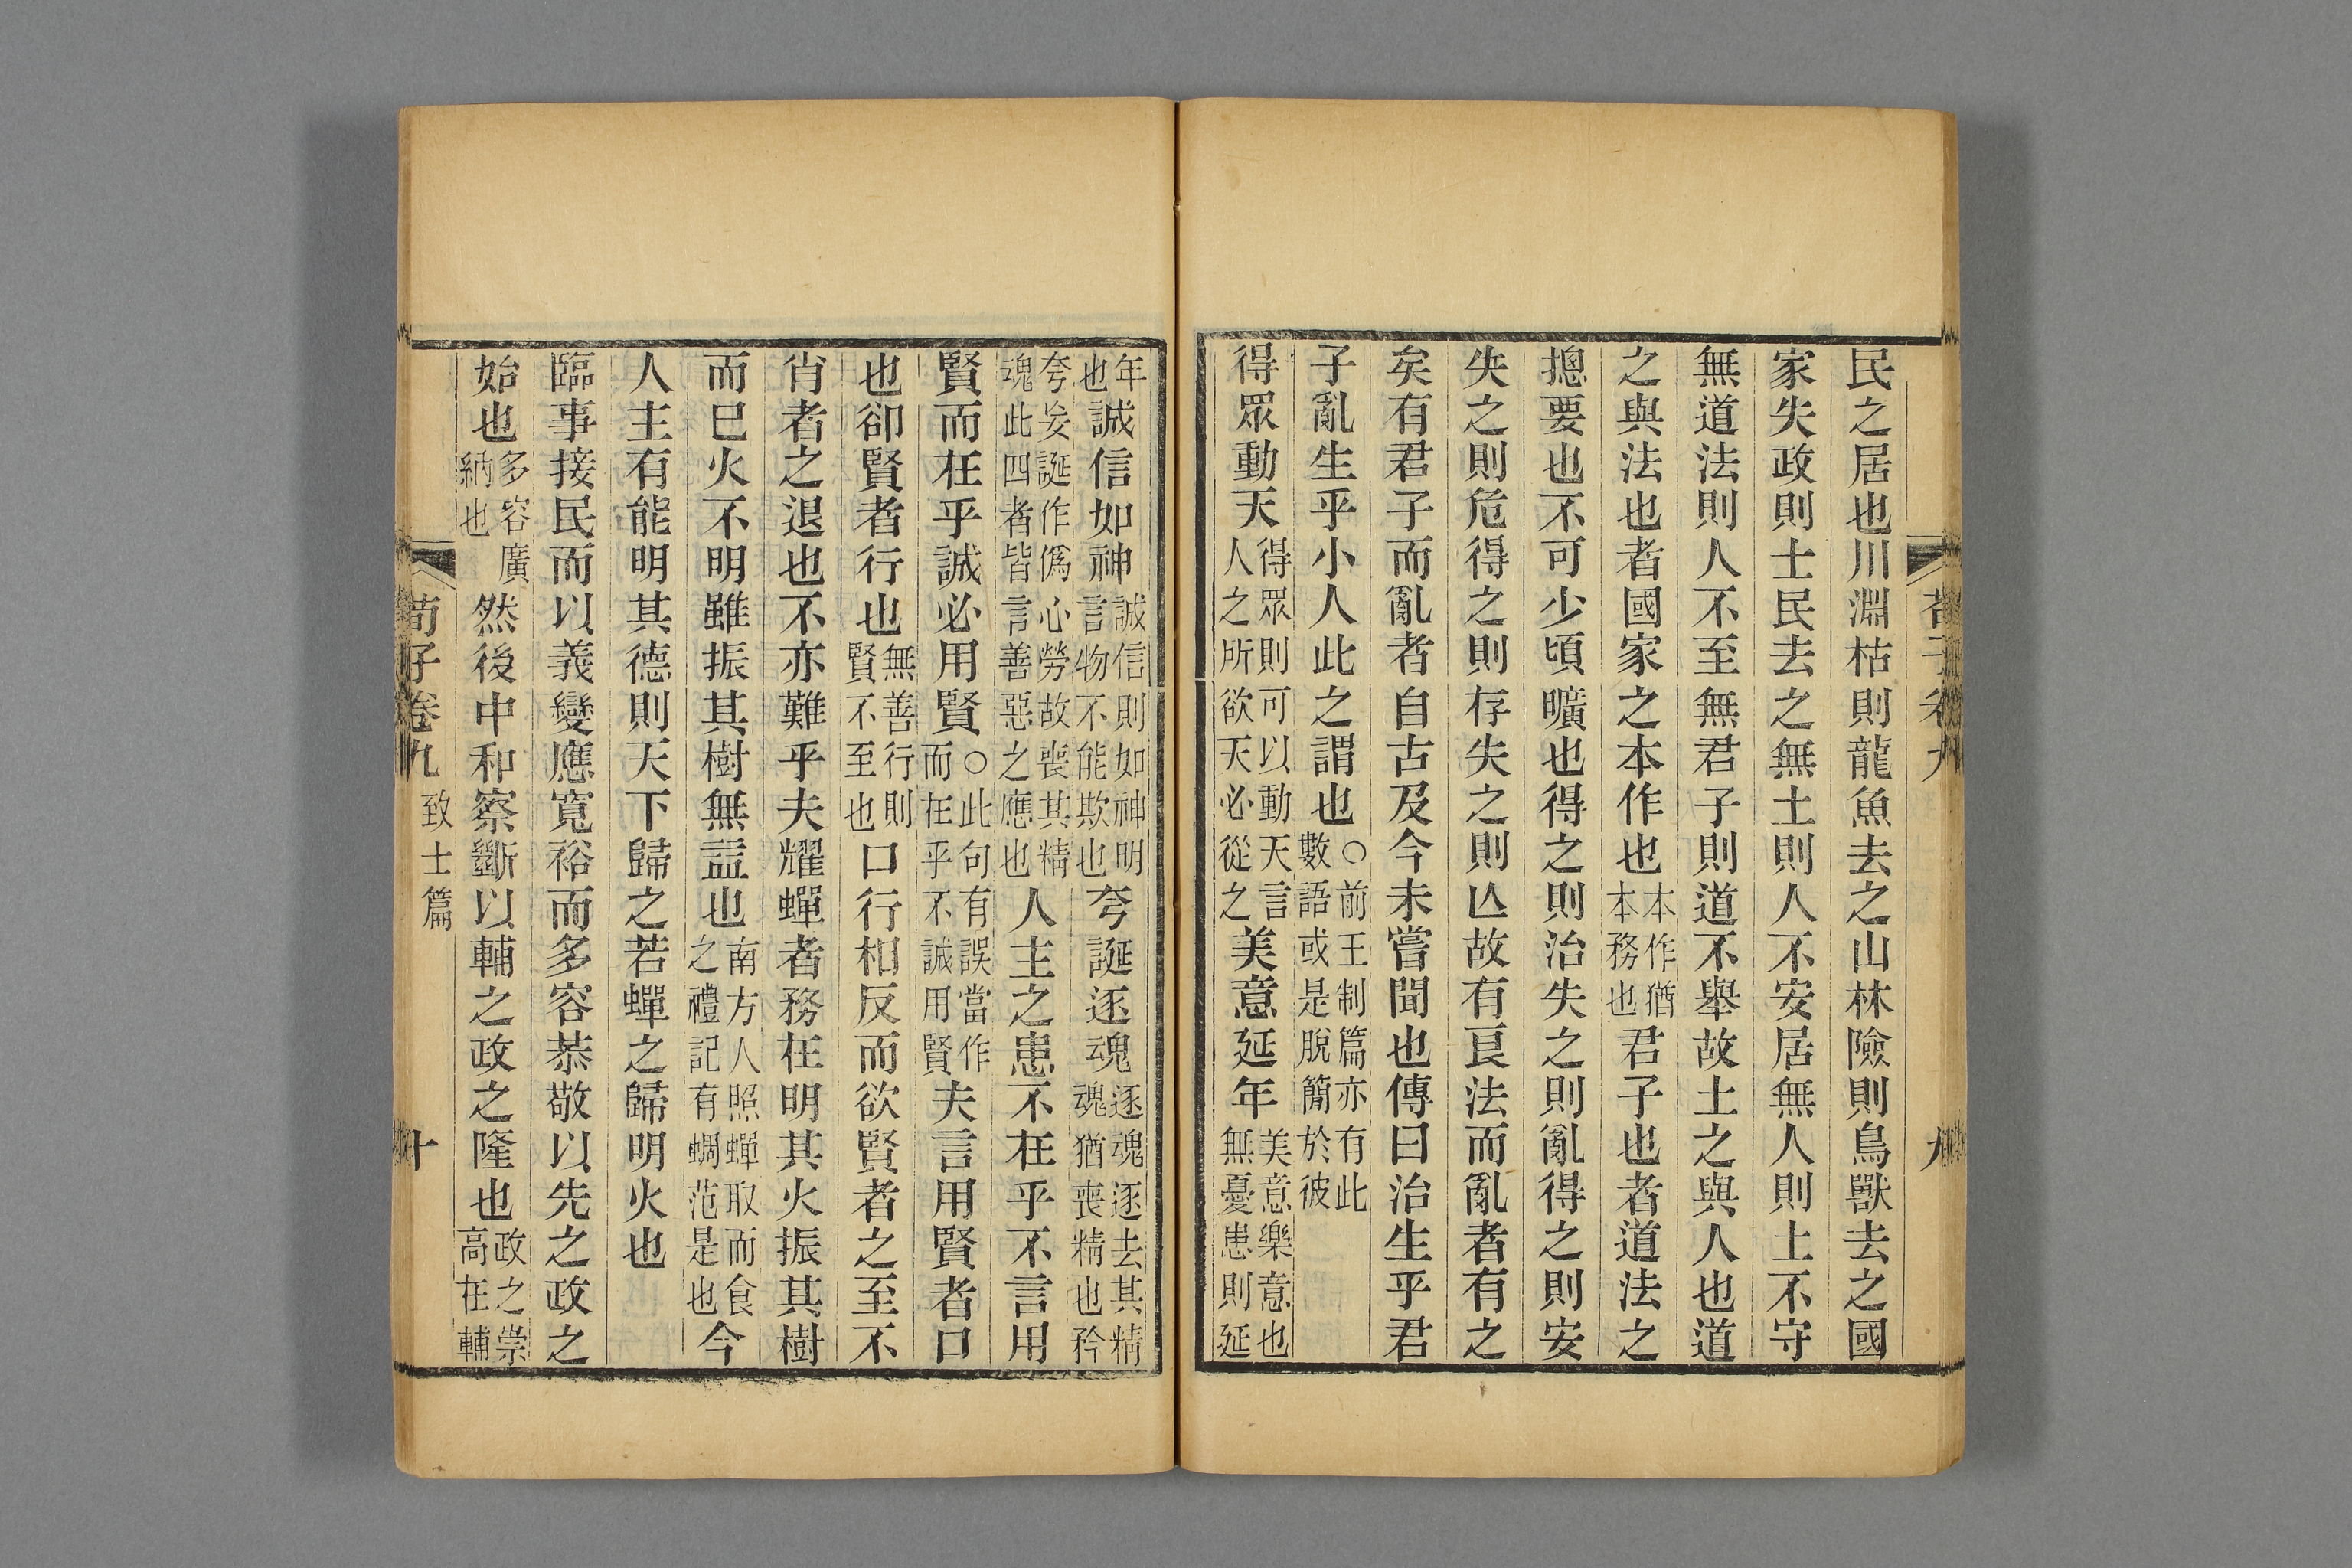 民之居也川淵枯則龍魚去之山林險則鳥獸去之國
家失政則士民去之無土則人不安居無人則土不守
無道法則人不至無君子則道不舉故土之與人也道
之與法也者國家之本作也本作猶本務也君子也者道法之
摠要也不可少頃曠也得之則治失之則亂得之則安
失之則危得之則存失之則亾故有良法而亂者有之
矣有君子而亂者自古及今未嘗聞也傳曰治生乎君
子亂生乎小人此之謂也○前王制篇亦有此數語或是脫簡於彼
得眾動天得眾則可以動天言人之所欲天必從之美意延年美意樂意也無憂患則延
年也誠信如神誠信則如神明言物不能欺也夸誕逐魂逐魂逐去其精魂猶喪精也矜
夸妄誕作僞心勞故喪其精魂此四者皆言善惡之應也人主之患不在乎不言用
賢而在乎誠必用賢○此句有誤當作而在乎不誠用賢夫言用賢者口
也卻賢者行也無善行則賢不至也口行相反而欲賢者之至不
肖者之退也不亦難乎夫耀蟬者務在明其火振其樹
而巳火不明雖振其樹無益也南方人照蟬取而食之禮記有蜩范是也今
人主有能明其德則天下歸之若蟬之歸明火也
臨事接民而以義變應寬裕而多容恭敬以先之政之
始也多容廣納也然後中和察斷以輔之政之隆也政之崇高在輔
荀子卷九 致士篇 十